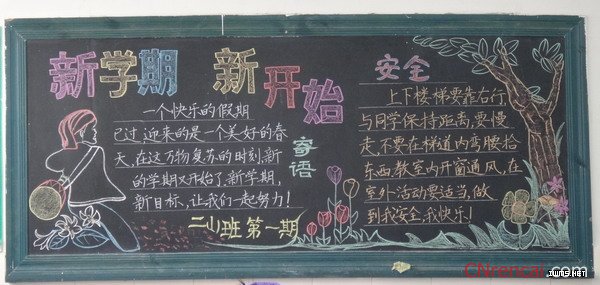 新学期 新开始
一个快乐的假期
已过,迎来的是一个美好的春
天,在这万物复苏的时刻,新
的学期又开始了,新学期,
新目标,让我们一起努力!
寄语
二(1)班第一期
安全
上下楼梯要靠右行,
与同学保持距离,要慢
走,不要在梯道内弯腰拾
东西,教室内开窗通风,在
室外活动要适当,做
到我安全,我快乐!
CNrencai.com